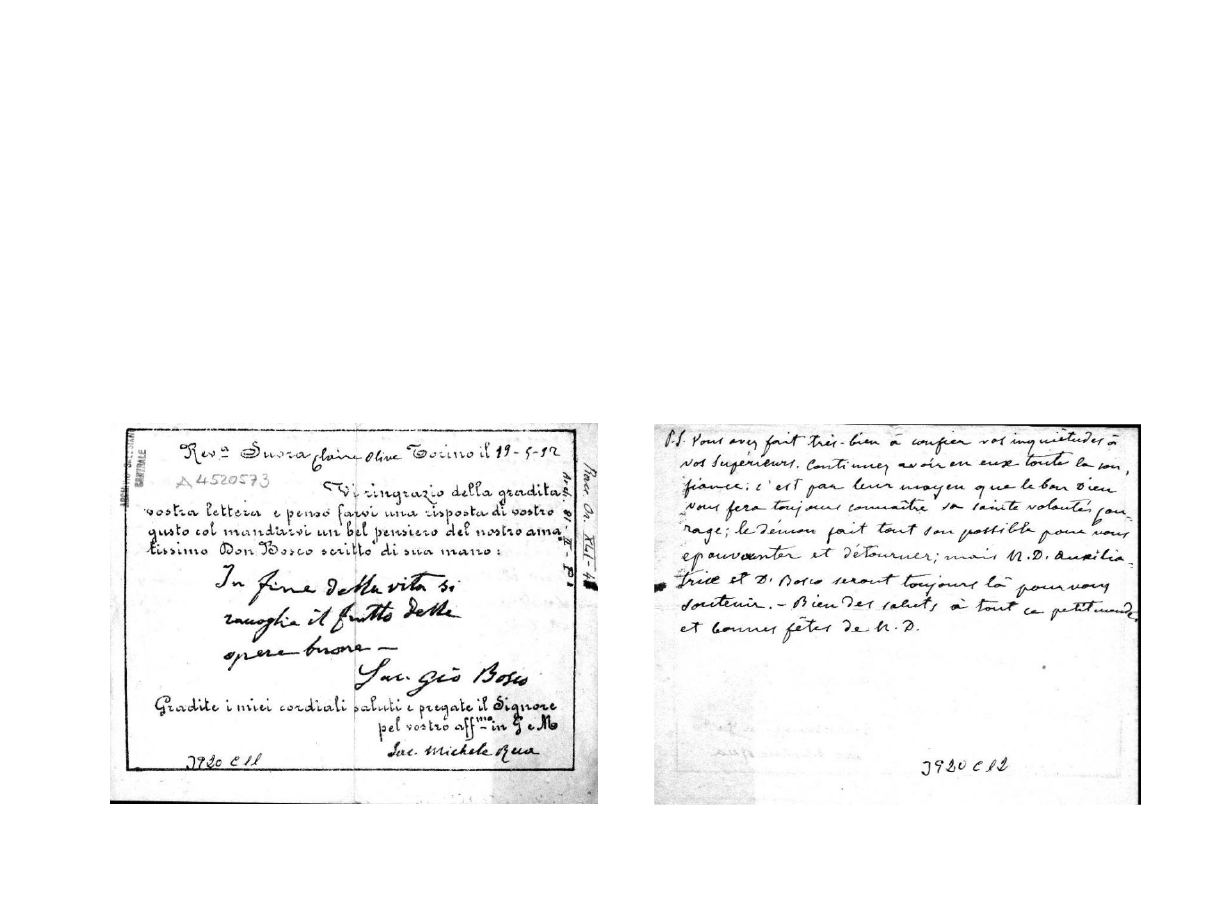 Rev.a Suora Claire Olive Torino il 19-5-92
A4520573
Vi ringrazio della gradita
vostra lettera e penso farvi una risposta di vostro
gusto col mandarvi un bel pensiero del nostro ama-
tissimo Don Bosco scritto di sua mano:
In fine della vita si
raccoglie il frutto delle
opere buone —
Sac. Gio Bosco
Gradite i miei cordiali saluti e pregate il Signore
pel vostro aff.mo in G e M
Sac. Michele Rua
3920 C 11
CENTRALE
P.S. Vous avez fait très-bien à confier vos inquiétudes à
vos Supérieurs. Continuez avoir en eux toute la con,
fiance; c'est par leur moyen que le bon Dieu
vous fera toujours connaître sa sainte volonté; cou-
rage; le démon fait tout son possible pour vous
epouvanter et détourner; mais N.D. Auxilia-
trice et D. Bosco seront toujours là pour vous
soutenir. - Bien des saluts à tout ce petit monde
et bonnes fêtes de N. D.
3920 C 12